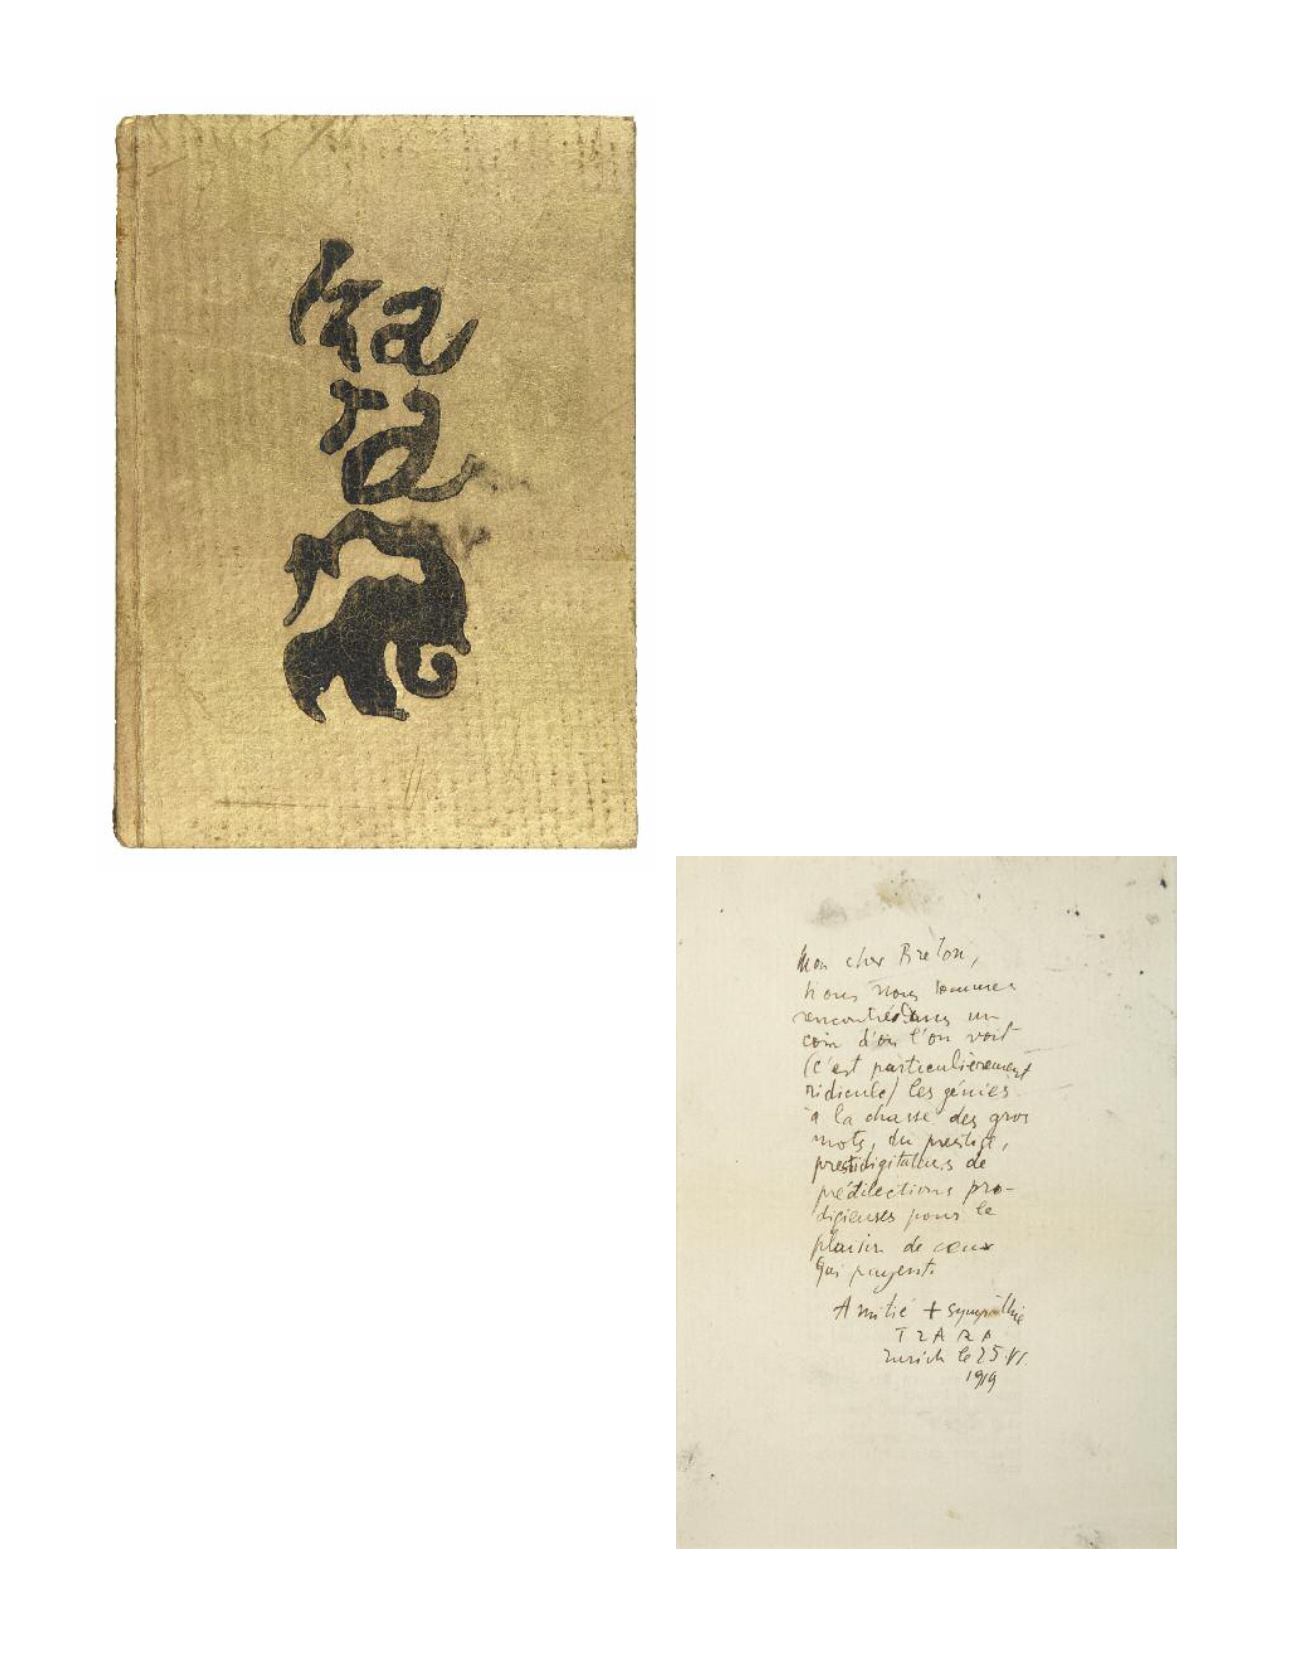 Mon cher Breton,
nous nous sommes
rencontrés dans un
coin d'où l'on voit
(c'est particulièrement
ridicule) les génies
à la chasse des gros
mots, du prestige,
prestidigitateurs de
prédilections pro-
digieuses pour le
plaisir de ceux
qui payent.
Amitié + sympathie
TZARA
Zurich le 25.VI.
1919